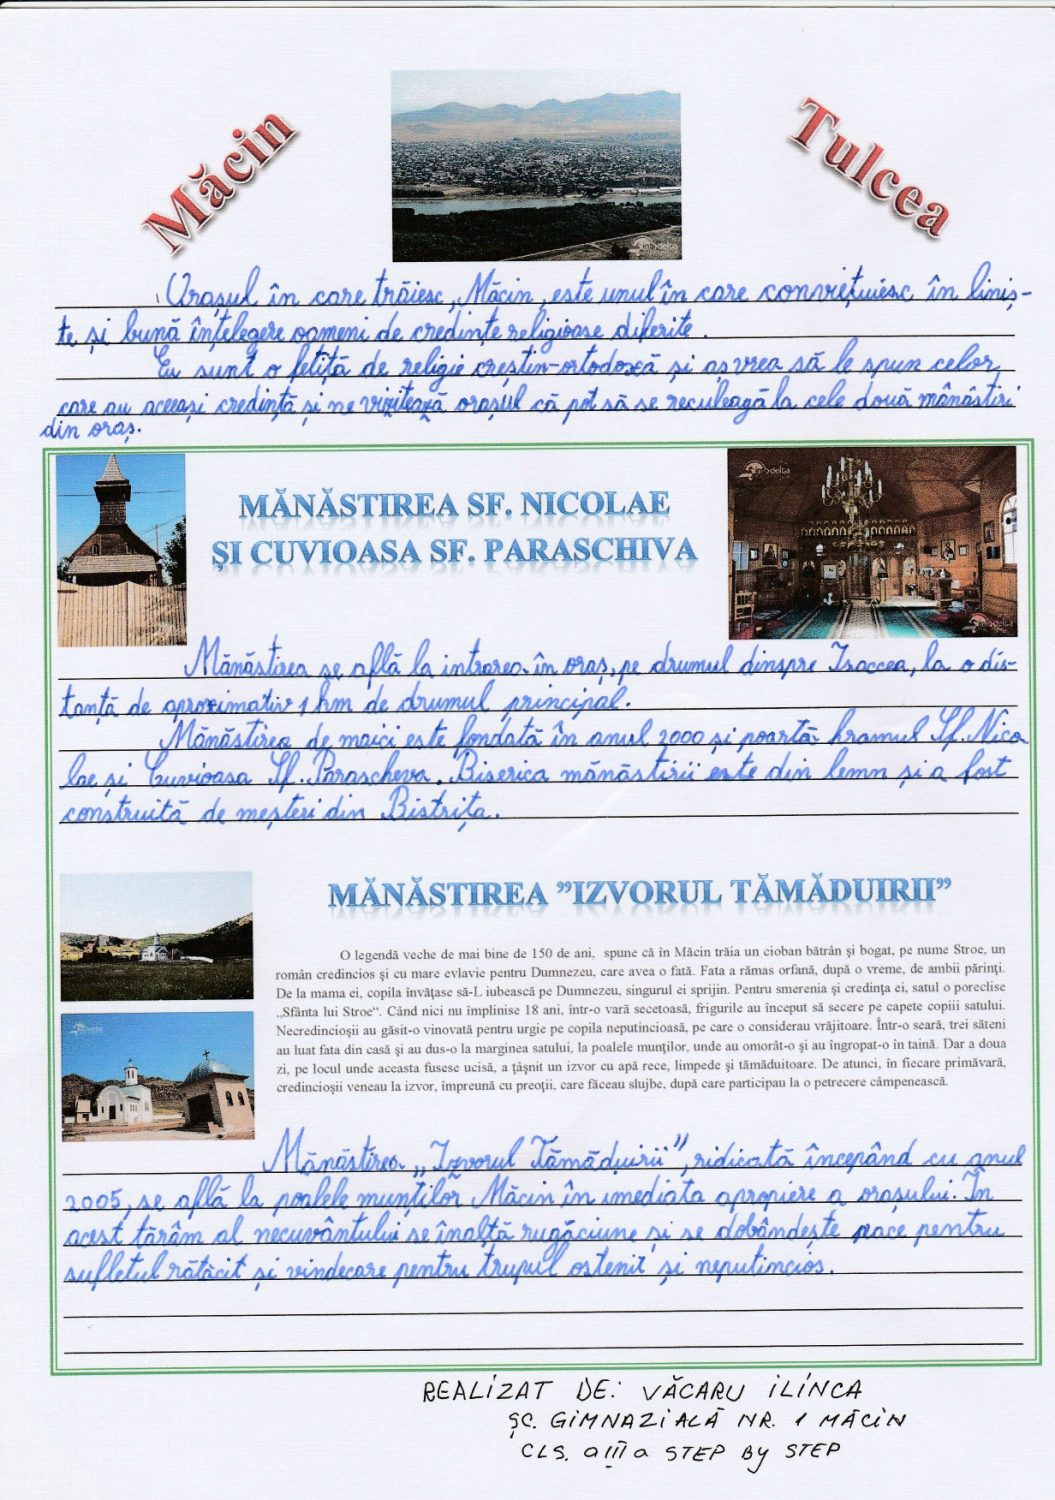 Măcin
Tulcea
Orașul în care trăiesc, Măcin, este unul în care conviețuiesc în liniș-
te și bună înțelegere oameni de credințe religioase diferite.
Eu sunt o fetiță de religie creștin-ortodoxă și aș vrea să le spun celor
care au aceeași credință și ne vizitează orașul că pot să se reculeagă la cele două mănăstiri
din oraș.
MĂNĂSTIREA SF. NICOLAE
ȘI CUVIOASA SF. PARASCHIVA
Mănăstirea se află la intrarea în oraș, pe drumul dinspre Isaccea, la o dis-
tanță de aproximativ 1 km de drumul principal.
Mănăstirea de maici este fondată în anul 2000 și poartă hramul Sf. Nico
lae și Cuvioasa Sf. Parascheva. Biserica mănăstirii este din lemn și a fost
construită de meșteri din Bistrița.
MĂNĂSTIREA ”IZVORUL TĂMĂDUIRII”
O legendă veche de mai bine de 150 de ani, spune că în Măcin trăia un cioban bătrân şi bogat, pe nume Stroe, un
român credincios şi cu mare evlavie pentru Dumnezeu, care avea o fată. Fata a rămas orfană, după o vreme, de ambii părinţi.
De la mama ei, copila învăţase să-L iubească pe Dumnezeu, singurul ei sprijin. Pentru smerenia şi credinţa ei, satul o poreclise
„Sfânta lui Stroe“. Când nici nu împlinise 18 ani, într-o vară secetoasă, frigurile au început să secere pe capete copiii satului.
Necredincioşii au găsit-o vinovată pentru urgie pe copila neputincioasă, pe care o considerau vrăjitoare. Într-o seară, trei săteni
au luat fata din casă şi au dus-o la marginea satului, la poalele munţilor, unde au omorât-o şi au îngropat-o în taină. Dar a doua
zi, pe locul unde aceasta fusese ucisă, a ţâşnit un izvor cu apă rece, limpede şi tămăduitoare. De atunci, în fiecare primăvară,
credincioşii veneau la izvor, împreună cu preoţii, care făceau slujbe, după care participau la o petrecere câmpenească.
Mănăstirea „Izvorul Tămăduirii”, ridicată începând cu anul
2005, se află la poalele munților Măcin în imediata apropiere a orașului. În
acest tărâm al necuvântului se înalță rugăciune și se dobândește pace pentru
sufletul rătăcit și vindecare pentru trupul ostenit și neputincios.
REALIZAT DE: VĂCARU ILINCA
ȘC. GIMNAZIALĂ NR. 1 MĂCIN
CLS. a III a STEP BY STEP